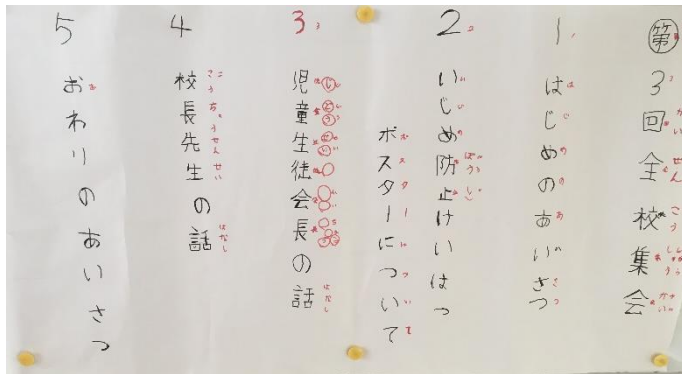 第3回全校集会
1 はじめのあいさつ
2 いじめ防止けいはつ
ポスターについて
3 児童生徒会長の話
4 校長先生の話
5 おわりのあいさつ